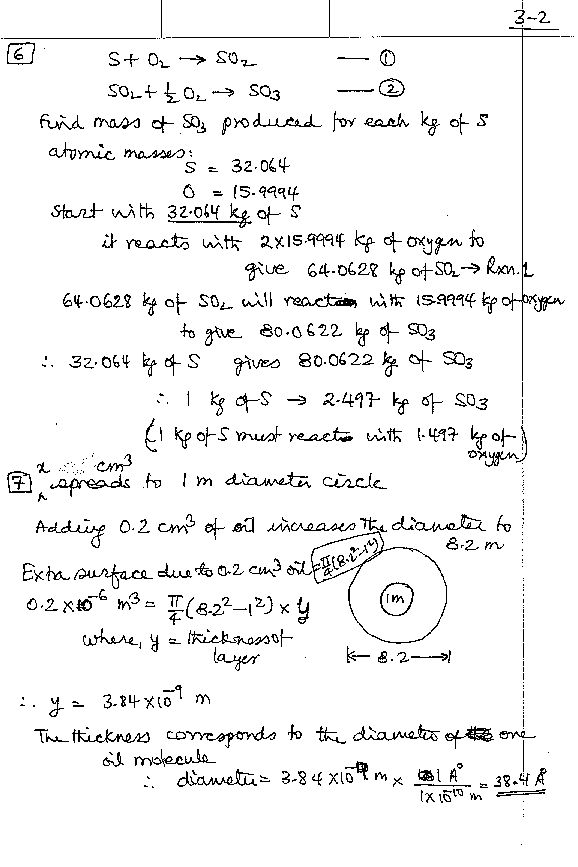 3-2
6
S + O₂ → SO₂ — ①
SO₂ + ½ O₂ → SO₃ — ②
Find mass of SO₃ produced for each kg of S
atomic masses:
S = 32.064
O = 15.9994
Start with 32.064 kg of S
it reacts with 2×15.9994 kg of oxygen to
give 64.0628 kg of SO₂ → Rxn. 1
64.0628 kg of SO₂ will react with 15.9994 kg of oxygen
to give 80.0622 kg of SO₃
∴ 32.064 kg of S gives 80.0622 kg of SO₃
∴ 1 kg of S → 2.497 kg of SO₃
(1 kg of S must react with 1.497 kg of
oxygen)
7 x cm³ spreads to 1 m diameter circle
Adding 0.2 cm³ of oil increases the diameter to
8.2 m
Extra surface due to 0.2 cm³ oil = π/4 (8.2² − 1²)
0.2 × 10⁻⁶ m³ = π/4 (8.2² − 1²) × y
1m
where, y = thickness of
layer
8.2
∴ y = 3.84 × 10⁻⁹ m
The thickness corresponds to the diameter of one
oil molecule
∴ diameter = 3.84 × 10⁻⁹ m × 1 A° / 1×10⁻¹⁰ m = 38.4 A°